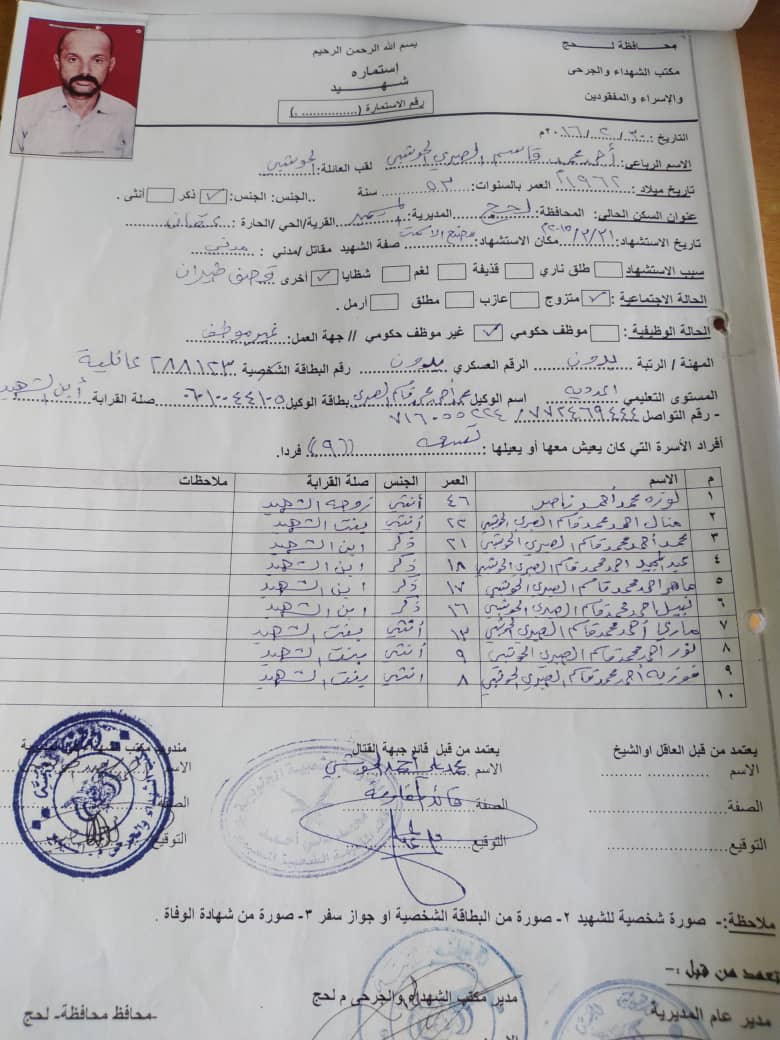 محافظة لحج
مكتب الشهداء والجرحى
والإسراء والمفقودين
بسم الله الرحمن الرحيم
إستماره
شهيد
رقم الاستمارة (.............. )
التاريخ: ٣٠ / ٢ / ٢٠١٦م
الاسم الرباعي: أحمد محمد قاسم الصبري الحوشبي لقب العائلة: الحوشبي
تاريخ ميلاد: ١٩٦٢م العمر بالسنوات: ٥٣ سنة ..الجنس: الجنس: ✓ ذكر أنثى .
عنوان السكن الحالي: المحافظة: لحج المديرية: المسيمير القرية/الحي / الحارة:
تاريخ الاستشهاد: ٢١/٣/٢٠١٥ مكان الاستشهاد: مصنع الاسمنت صفة الشهيد مقاتل /مدني : مدني
سبب الاستشهاد طلق ناري قذيفة لغم شظايا ✓ أخرى قصف طيران
الحالة الاجتماعية : ✓ متزوج عازب مطلق أرمل .
الحالة الوظيفية : موظف حكومي ✓ غير موظف حكومي // جهة العمل: غير موظف
المهنة / الرتبة بدون الرقم العسكري بدون رقم البطاقة الشخصية ٢٨٨١٢٣ عائلية
المستوى التعليمي اسم الوكيل محمد أحمد محمد قاسم الصبري بطاقة الوكيل صلة القرابة أبن الشهيد
- رقم التواصل ٧٧٢٤٦٩٤٤٤ / ٧١٦٠٥٥٢٢٤
أفراد الأسرة التي كان يعيش معها أو يعيلها : تسعه ((٩)) فردا.
م الاسم العمر الجنس صلة القرابة ملاحظات
١ لوزه محمد أحمد ناصر ٤٦ أنثى زوجة الشهيد
٢ منال احمد محمد قاسم الصبري الحوشبي ٢٢ أنثى بنت الشهيد
٣ محمد أحمد محمد قاسم الصبري الحوشبي ٢١ ذكر ابن الشهيد
٤ عبدالمجيد احمد محمد قاسم الصبري الحوشبي ١٨ ذكر ابن الشهيد
٥ ماهر احمد محمد قاسم الصبري الحوشبي ١٧ ذكر ابن الشهيد
٦ نبيل احمد محمد قاسم الصبري الحوشبي ١٦ ذكر ابن الشهيد
٧ أحمد محمد قاسم الصبري الحوشبي ١٣ أنثى بنت الشهيد
٨ نور احمد محمد قاسم الصبري الحوشبي ٩ أنثى بنت الشهيد
٩ فوزيه أحمد محمد قاسم الصبري الحوشبي ٨ أنثى بنت الشهيد
١٠
يعتمد من قبل العاقل اوالشيخ
الاسم .........
الصفة
التوقيع
يعتمد من قبل قائد جبهة القتال
الاسم محمد علي أحمد الحوشبي
الصفة قائد المقاومة
التوقيع
مندوب مكتب
الاسم
الصفة
التوقيع
ملاحظة:- صورة شخصية للشهيد ٢- صورة من البطاقة الشخصية او جواز سفر ٣- صورة من شهادة الوفاة .
تعمد من قبل :-
مدير عام المديرية
مدير مكتب الشهداء والجرحى م لحج
محافظ محافظة- لحج